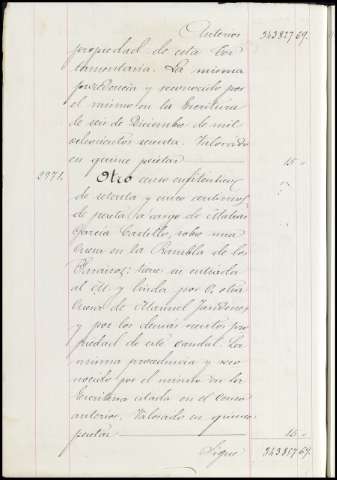 Anterior 343817 69.
propiedad de esta Tes
tamentaria. La misma
procedencia y reconocido por
el mismo en la Escritura
de seis de Diciembre de mil
ochocientos sesenta. Valorado
en quince pesetas 15 "
2971. Otro censo enfitéutico
de setenta y cinco centimos
de peseta, a cargo de Mateo
Garcia Castillo, sobre una
cueva en la Rambla de los
tiene su entrada
al M y linda por O. otra
cueva de Manuel
y por los demás vientos pro
piedad de este caudal. La
misma procedencia y reco
nocido por el mismo en la
Escritura citada en el censo
anterior. Valorado en quince
pesetas 15 "
Sigue